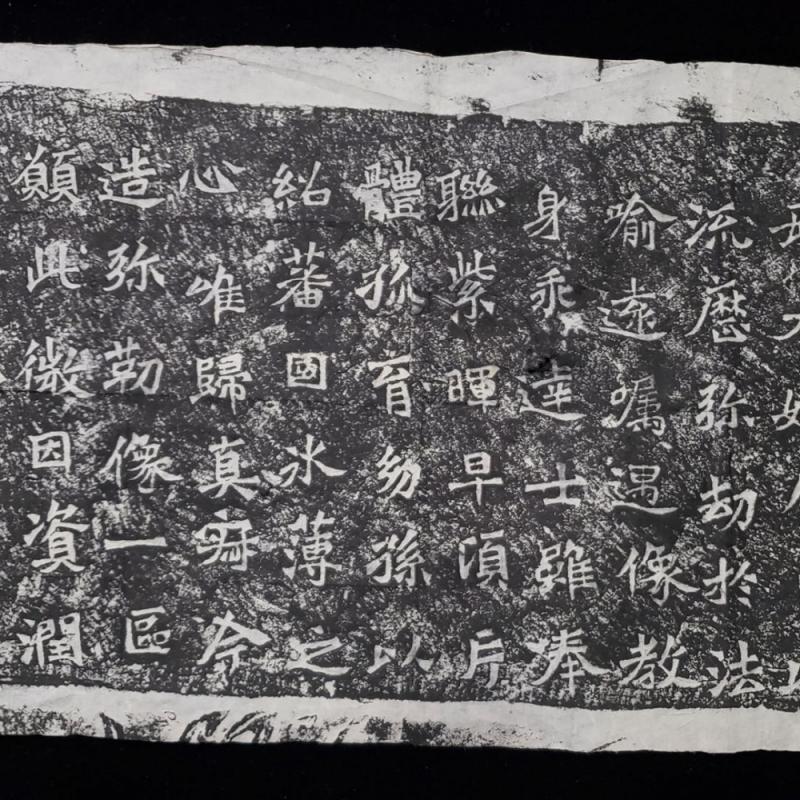 流歷弥劫於法
喻遠嘱遇像教
身乖達士雖奉
聯紫暉早頃片
體孤育幼孫以
紹蕃國冰薄之
心唯歸真寂今
造弥勒像一區
願此微因資潤